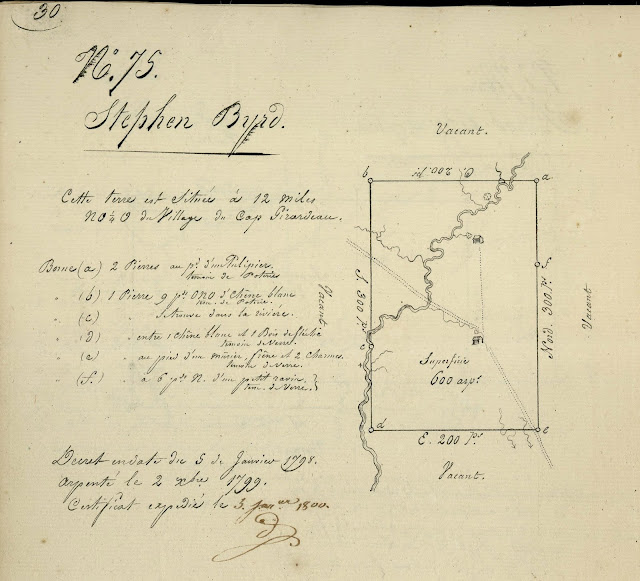 30
No. 75.
Stephen Byrd.
Cette terre est située à 12 miles
NO¼O du Village du Cap Girardeau.
Borne (a) 2 Pierres au pd. d'un Tulipier
temoin de Poterie
" (b) 1 Pierre 9 pds ONO d'1 chêne blanc
tem. de Poterie.
" (c) " se trouve dans la rivière.
" (d) " entre 1 chêne blanc et 1 Bois de flèche
temoin de Verre.
" (e) " au pied d'un murier, frêne et 2 Charmes.
temoin de Verre.
" (f.) " à 6 pds N. d'un petit ravin
tem. de Verre.
Decret en date du 5 de Janvier 1798.
arpenté le 2 xbre 1799.
Certificat expedié le 5. Janer 1800.
Vacant.
b
O. 200. ps.
a
Vacant
S. 300. ps.
c
f
Nord. 300. ps.
Vacant
Superficie
600 arps.
d
E. 200 ps.
e
Vacant.